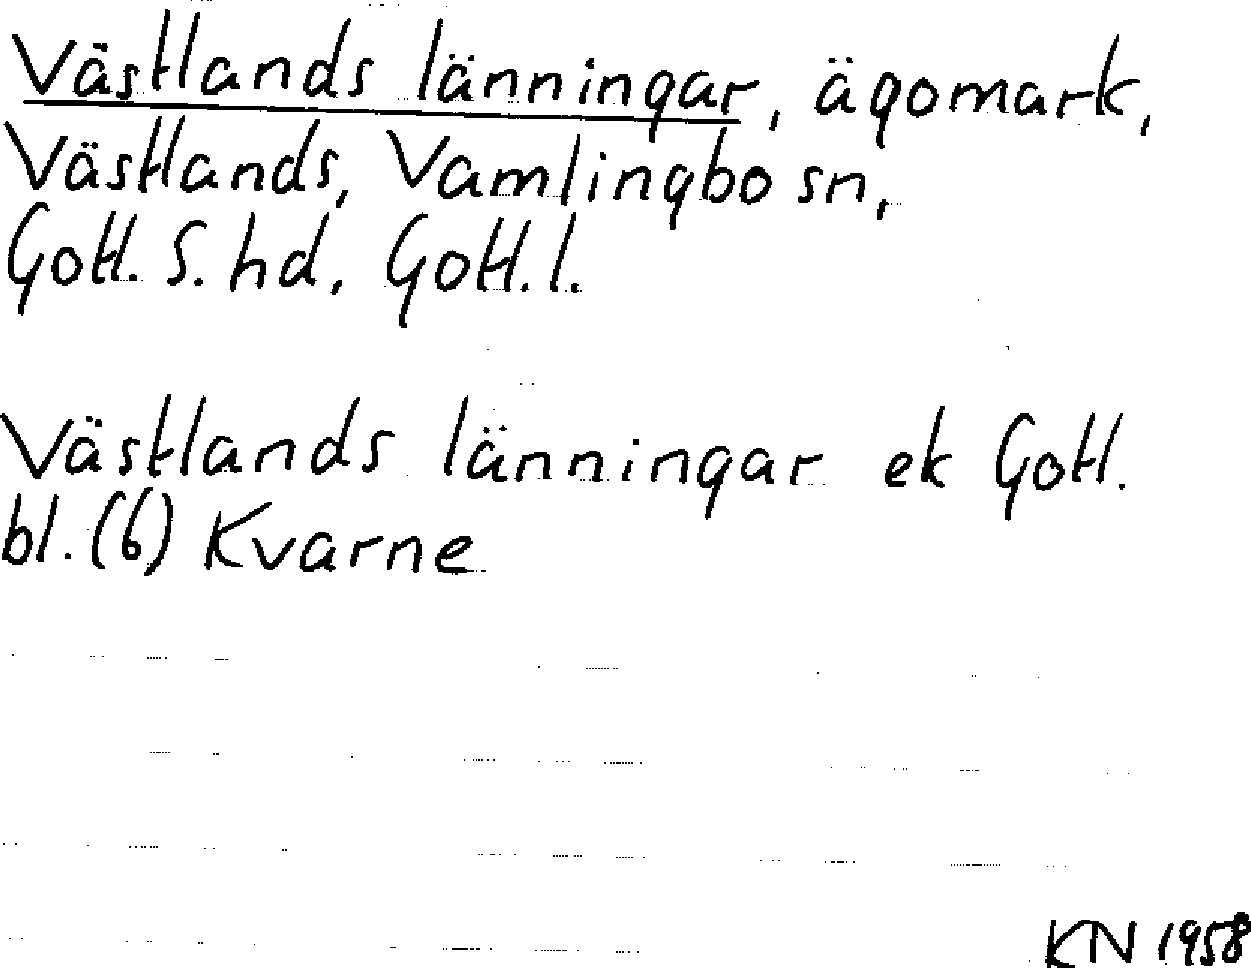 Västlands länningar, ägomark,
Västlands, Vamlingbo sn,
Gotl. S. hd, Gotl. l.
Västlands länningar ek Gotl.
bl. (6) Kvarne
KN 1958